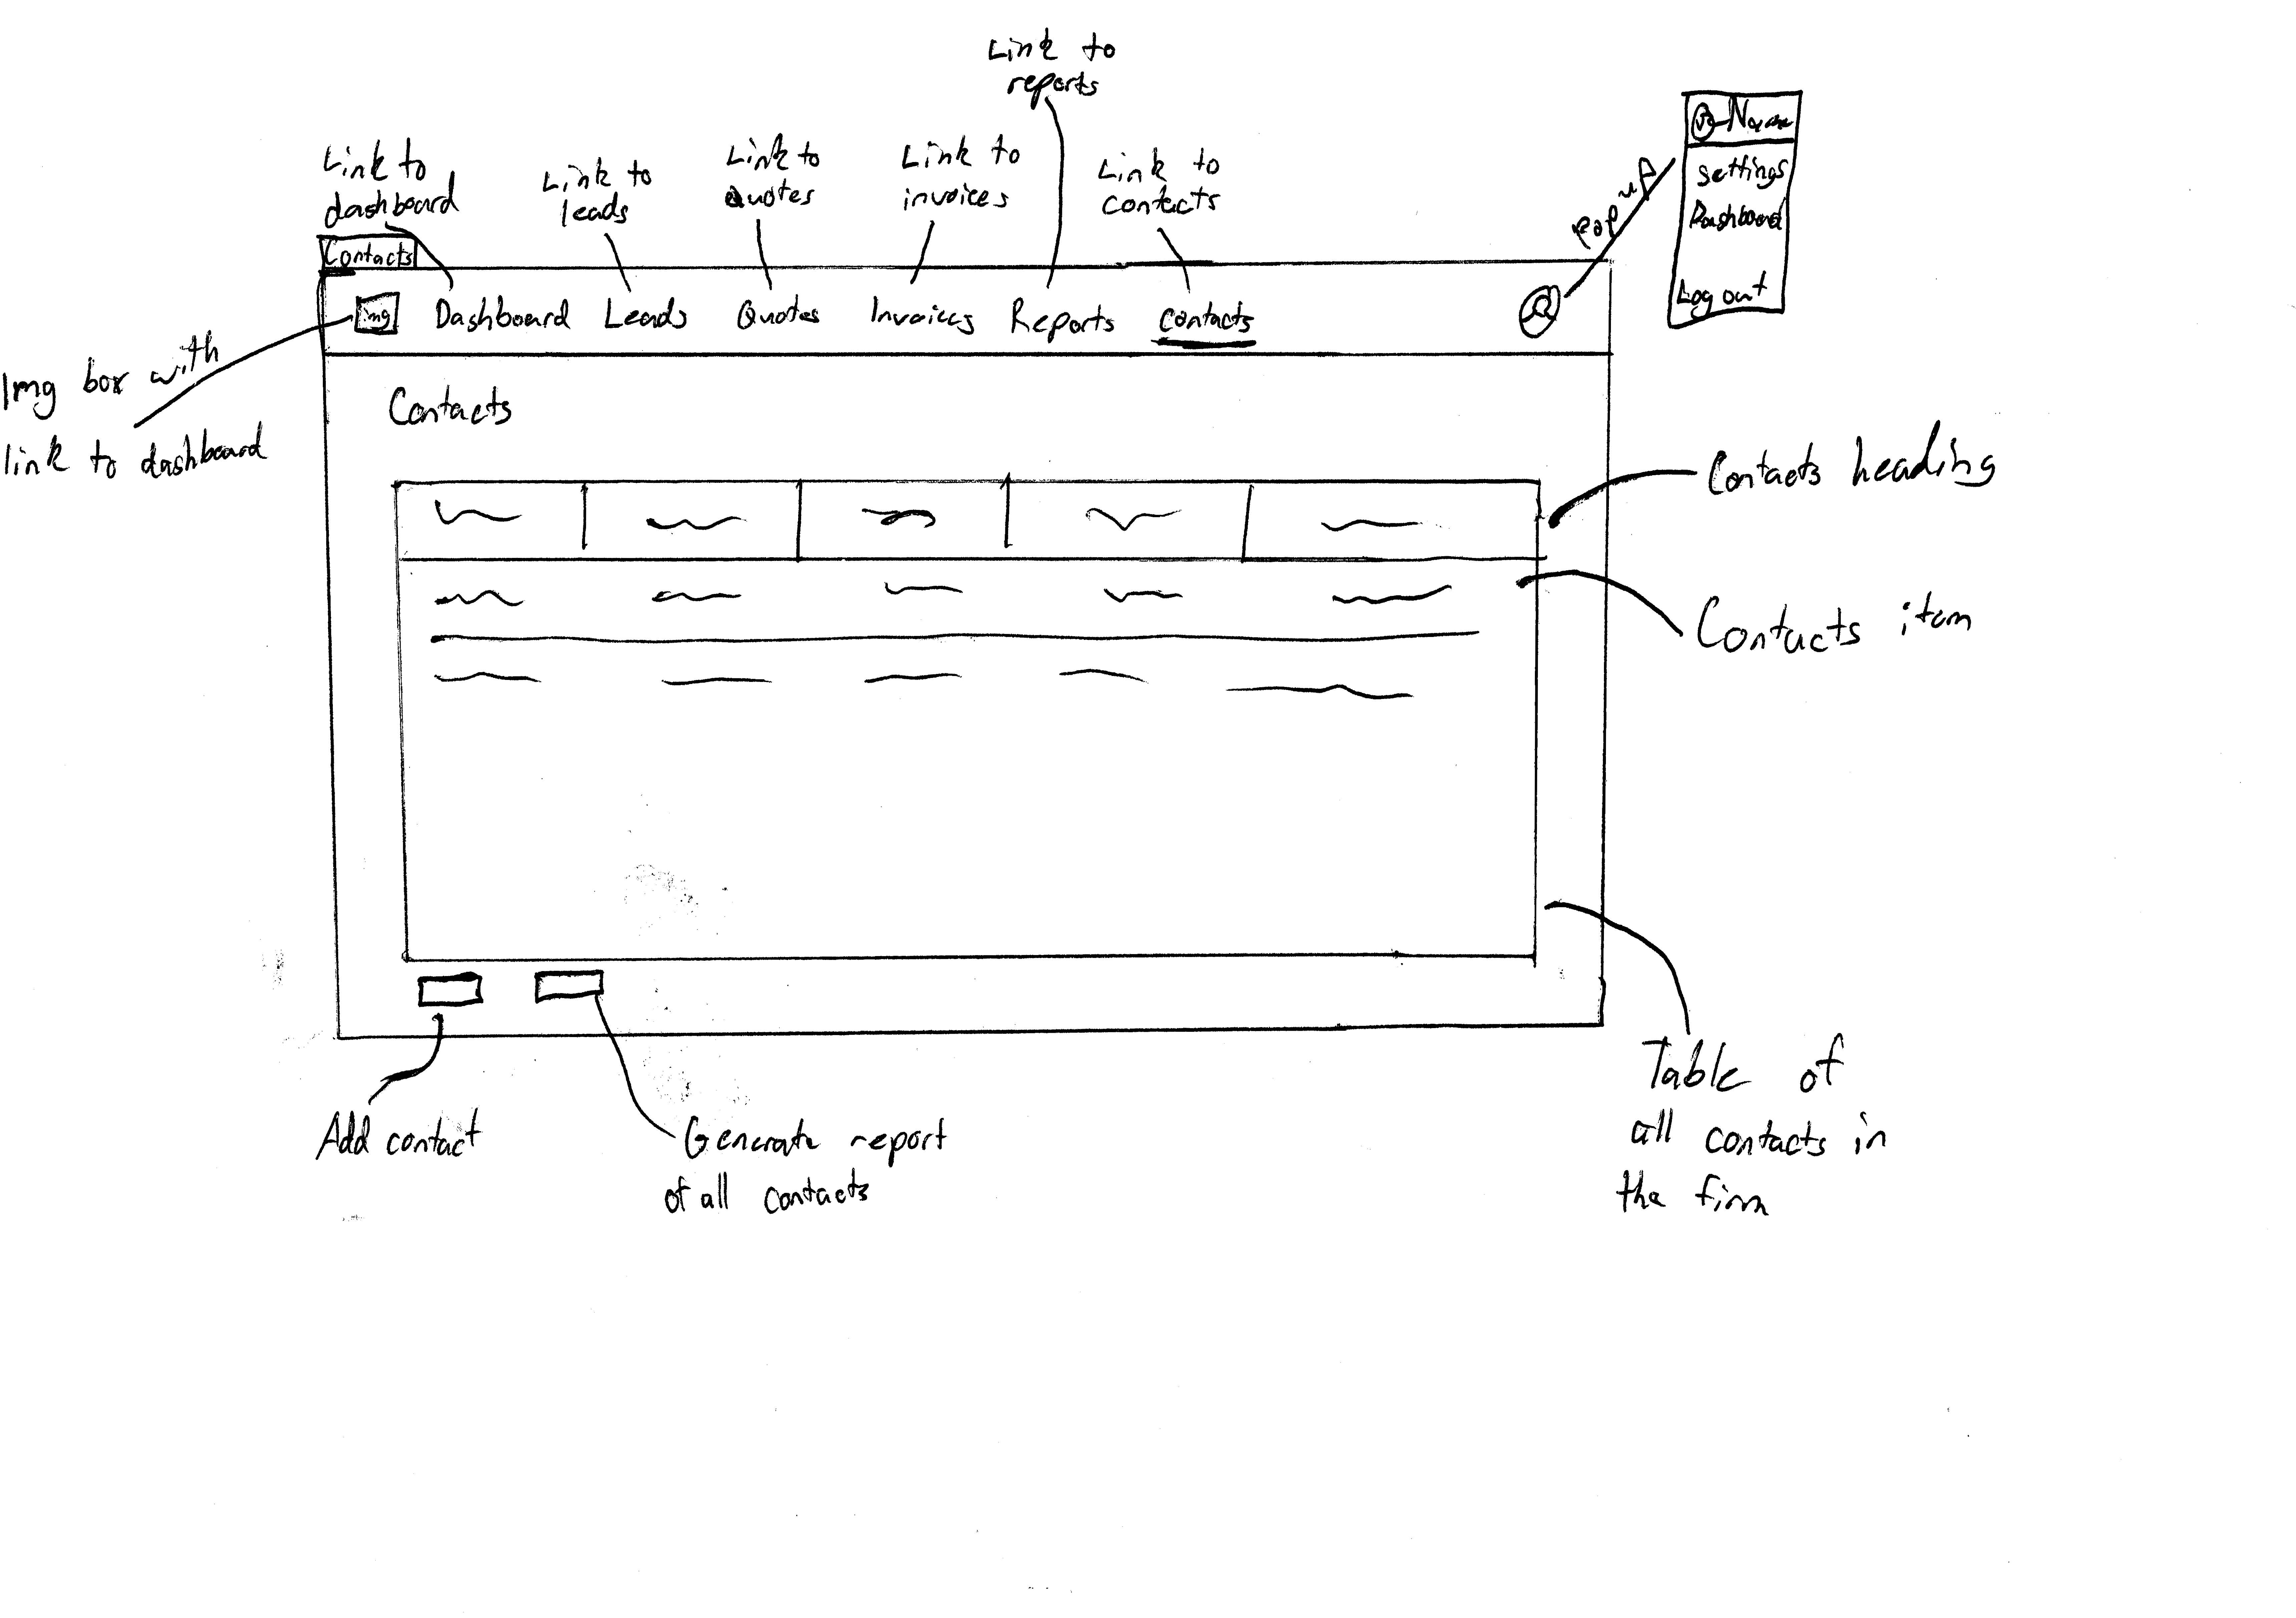 Link to
reports
Link to
dashboard
Link to
leads
Link to
Quotes
Link to
invoices
Link to
contacts
Pop up
Name
Settings
Dashboard
Log out
Contacts
img
Dashboard
Leads
Quotes
Invoices
Reports
Contacts
Img box with
link to dashboard
Contacts
Contacts heading
Contacts item
Table of
all contacts in
the firm
Add contact
Generate report
of all contacts